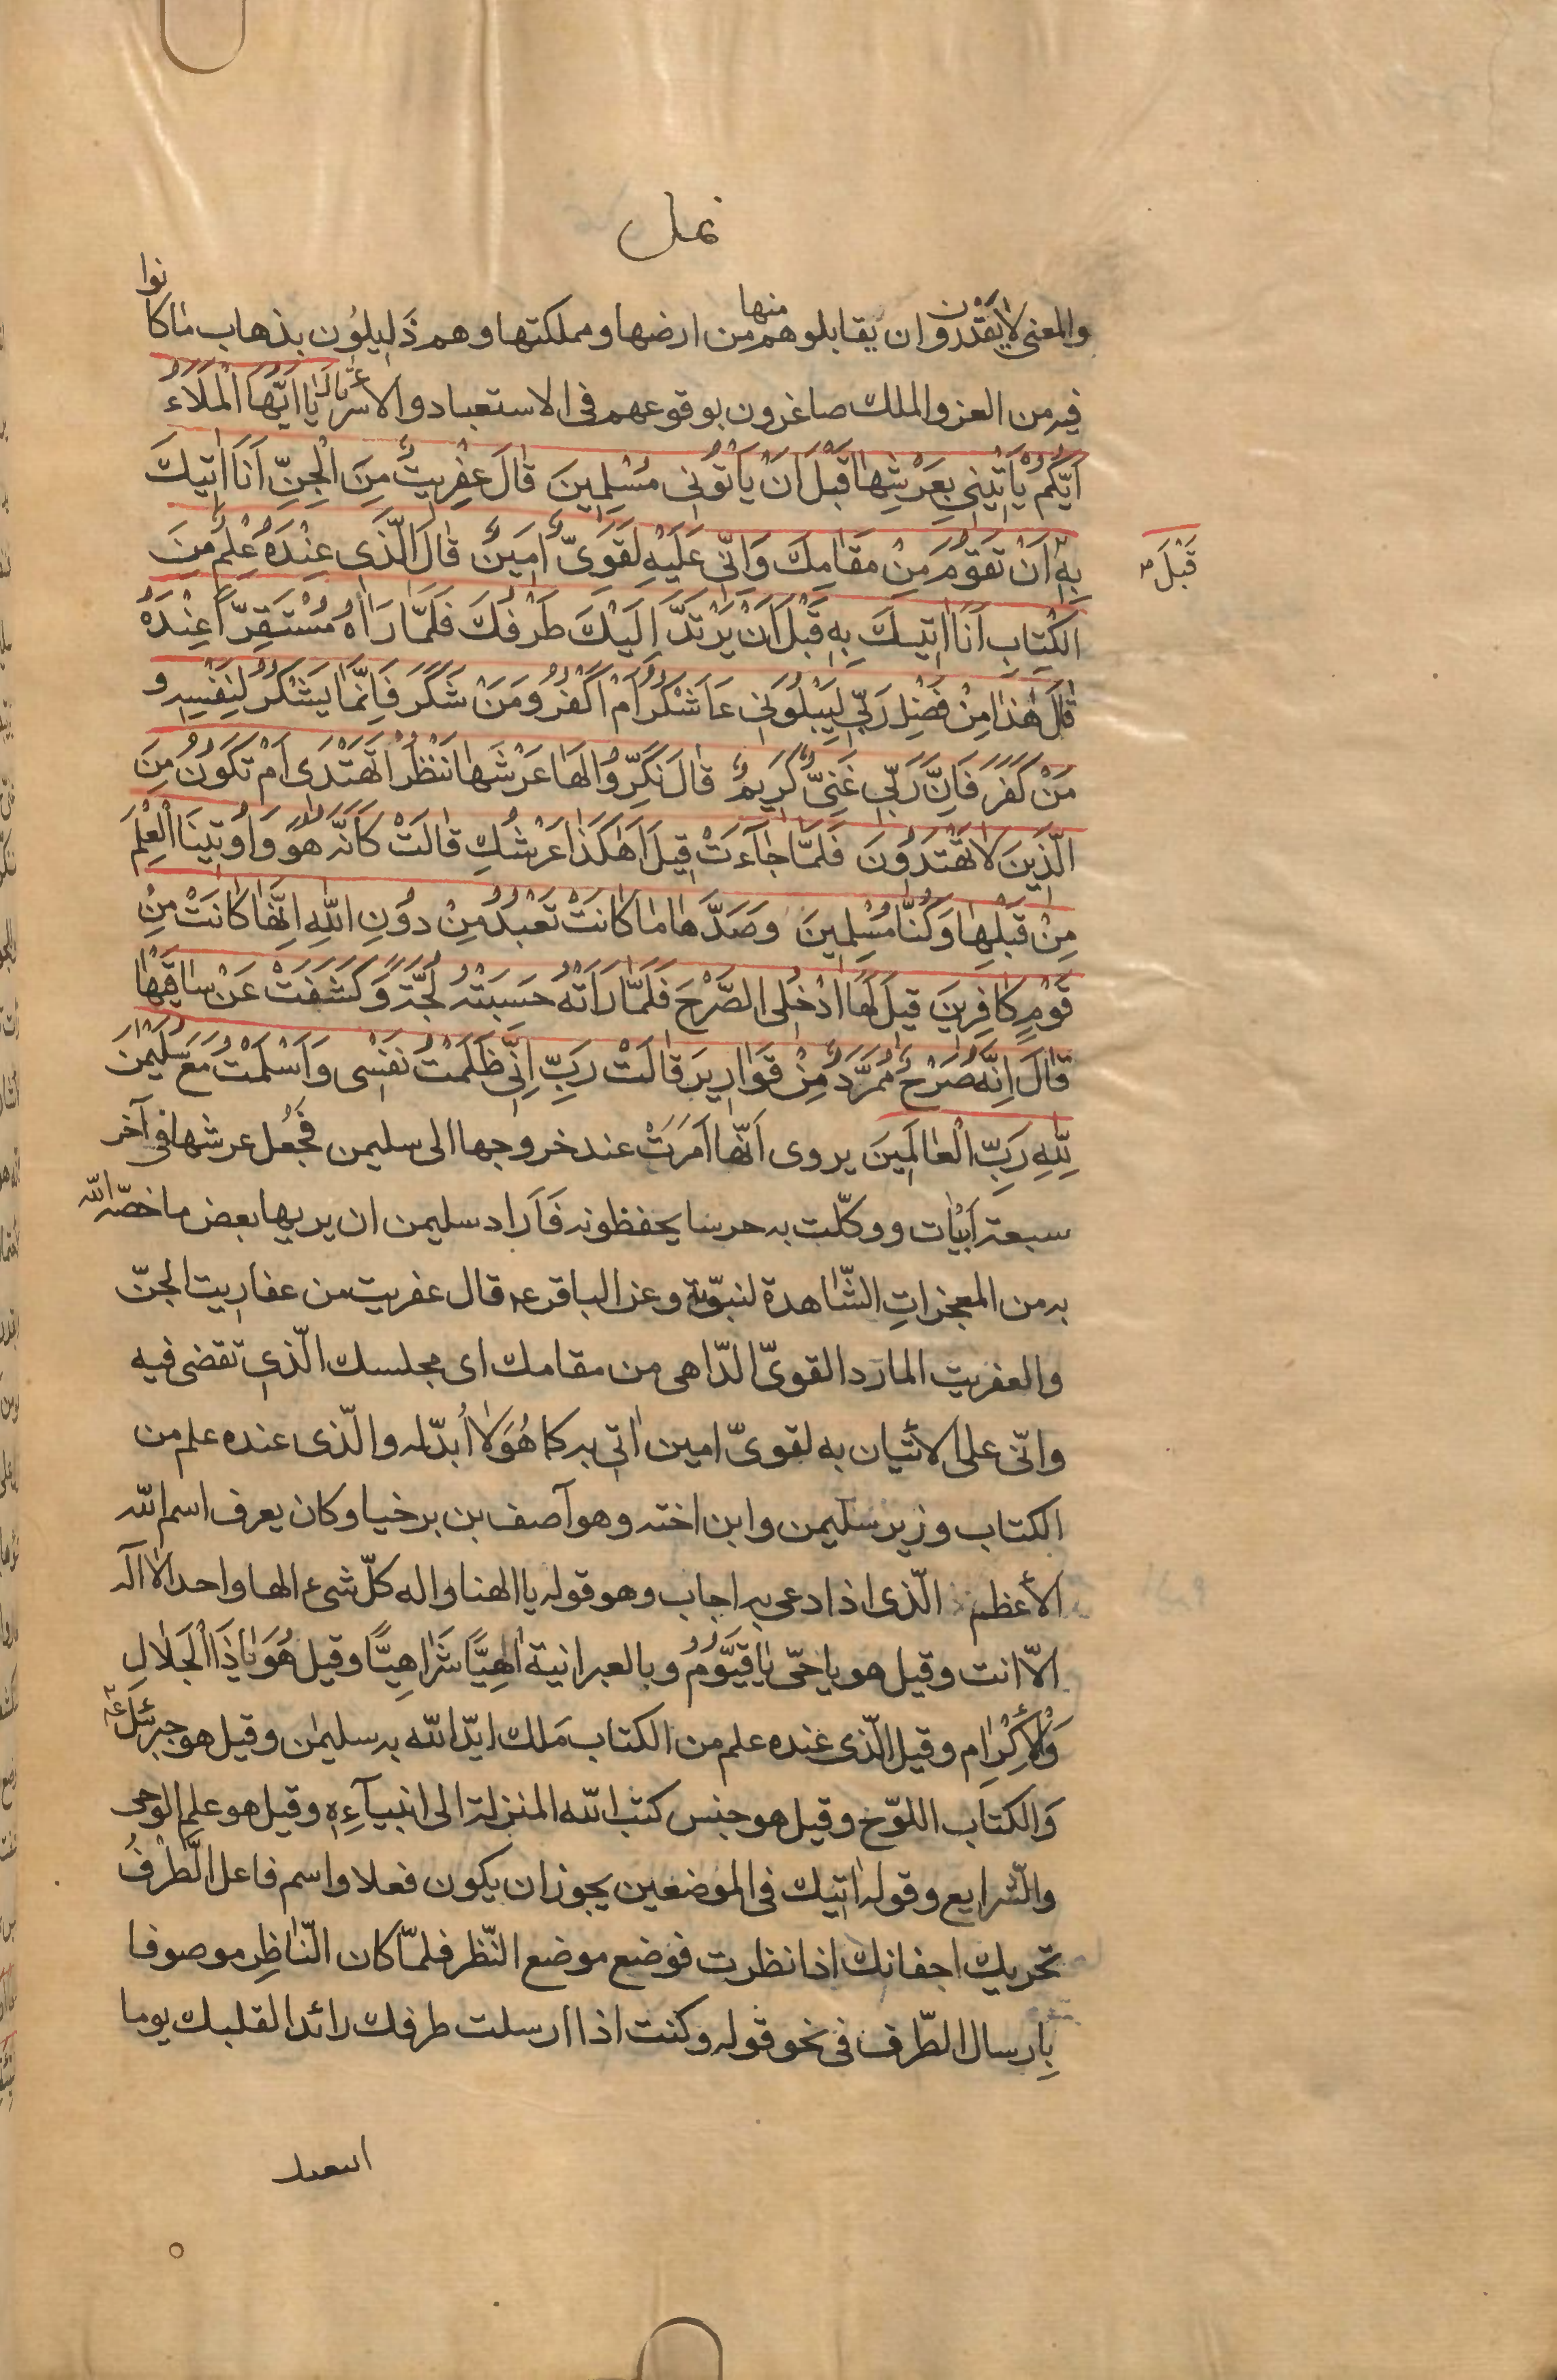 نمل
والمعنى لا يقدرون ان يقابلوهم منها من ارضها ومملكتها وهم ذَليلوُن بذهاب ماكانوا
فيه من العز والملك صاغرون بوقوعهم فى الاستعباد والاسر قالَ يا اَيُّهَا الْمَلَاءُ
اَيُّكُمْ يَاْتيني بِعَرْشِها قَبْلَ اَنْ يَأتُونى مُسْلِمينَ قالَ عِفْريتٌ مِنَ الْجِنِّ اَنَا اتيكَ
بِهِ اَنْ تَقوُمَ مِنْ مَقامِكَ وَاِنّى عَلَيْهِ لَقَوِىٌّ اَمينٌ قالَ الَّذى عِنْدَهُ عِلْمٌ مِنَ
قَبْلَ م
الْكِتابِ اَنَا اتيكَ بِهِ قَبْلَ اَنْ يَرْتَدَّ اِلَيْكَ طَرْفُكَ فَلَمّا رَاهُ مُسْتَقِرّاً عِنْدَهُ
قالَ هذا مِنْ فَضْلِ رَبّى لِيَبْلُوَنى ءَاَشْكُرُ اَمْ اَكْفُرُ وَمَنْ شَكَرَ فَاِنَّما يَشْكُرُ لِنَفْسِهِ و
مَنْ كَفَرَ فَاِنَّ رَبّى غَنِىٌّ كَريمٌ قالَ نَكِّرُوا لَها عَرْشَها نَنْظُرْ اَتَهْتَدى اَمْ تَكوُنُ مِنَ
الَّذينَ لا تَهْتَدوُنَ فَلَمّا جاءَتْ قيلَ اَهكَذا عَرْشُكِ قالَتْ كَاَنَّه هُوَ وَاوُتينَا الْعِلْمَ
مِنْ قَبْلِها وَكُنّا مُسْلِمينَ وَصَدَّها ما كانَتْ تَعْبُدُ مِنْ دوُنِ اللّهِ اِنَّها كانَتْ مِنْ
قَوْمٍ كافِرينَ قيلَ لَهَا ادْخُلِى الصَّرْحَ فَلَمّا رَاَتْهُ حَسِبَتْهُ لُجَّةً وَكَشَفَتْ عَنْ ساقَيْها
قالَ اِنَّهُ صَرْحٌ مُمَرَّدٌ مِنْ قَواريرَ قالَتْ رَبِّ اِنّى ظَلَمْتُ نَفْسى وَاَسْلَمْتُ مَعَ سُلَيْمنَ
لِلّهِ رَبِّ الْعالَمينَ يروى اَنّها اَمَرَتْ عند خروجها الى سليمن فجُعل عرشها فى آخر
سبعة اَبْيات ووكّلت به حرسا يحفظونه فَاَراد سليمن ان يريها بعض ما خصّه اللّه
به من المعجزاتِ الشّاهدة لنبوّته وعن الباقر ع قال عفريت من عفاريت الجنّ
والعفريت المارد القوىّ الدّاهى من مقامك اى مجلسك الّذى تقضى فيه
وانّى على الاتيان به لقوىّ امين اتى به كما هُوَ لا اُبدّله والّذى عنده علم من
الكتاب وزير سليمن وابن اخته وهو آصف بن برخيا وكان يعرف اسم اللّه
الأعظم الّذى اذا دعى به اجاب وهو قوله يا الهنا واله كلّ شىء الها واحدا لا اله
الاّ انت وقيل هو يا حىّ يا قَيّوُمُ وبالعبرانية اهِيًّا شَراهِيًّا وقيل هُوَ يا ذَا الْجَلالِ
وَالْاِكْرامِ وقيل الّذى عنده علم من الكتاب مَلك ايّد اللّه به سليمن وقيل هو جبرئيل ع
وَالكتاب اللوّح وقيل هو جنس كتب اللّه المنزلة الى انبيآءِهِ وقيل هو علم الوحى
والشّرايع وقوله اتيك فى الموضعين يجوز ان يكون فعلا واسم فاعل الطَّرْفُ
تحريك اجفانك اذا نظرت فوضع موضع النّظر فلمّا كان النّاظِر موصوفا
بِارسال الطّرف فى نحو قوله وكنت اذا ارسلت طرفك رائدا لقلبك يوما